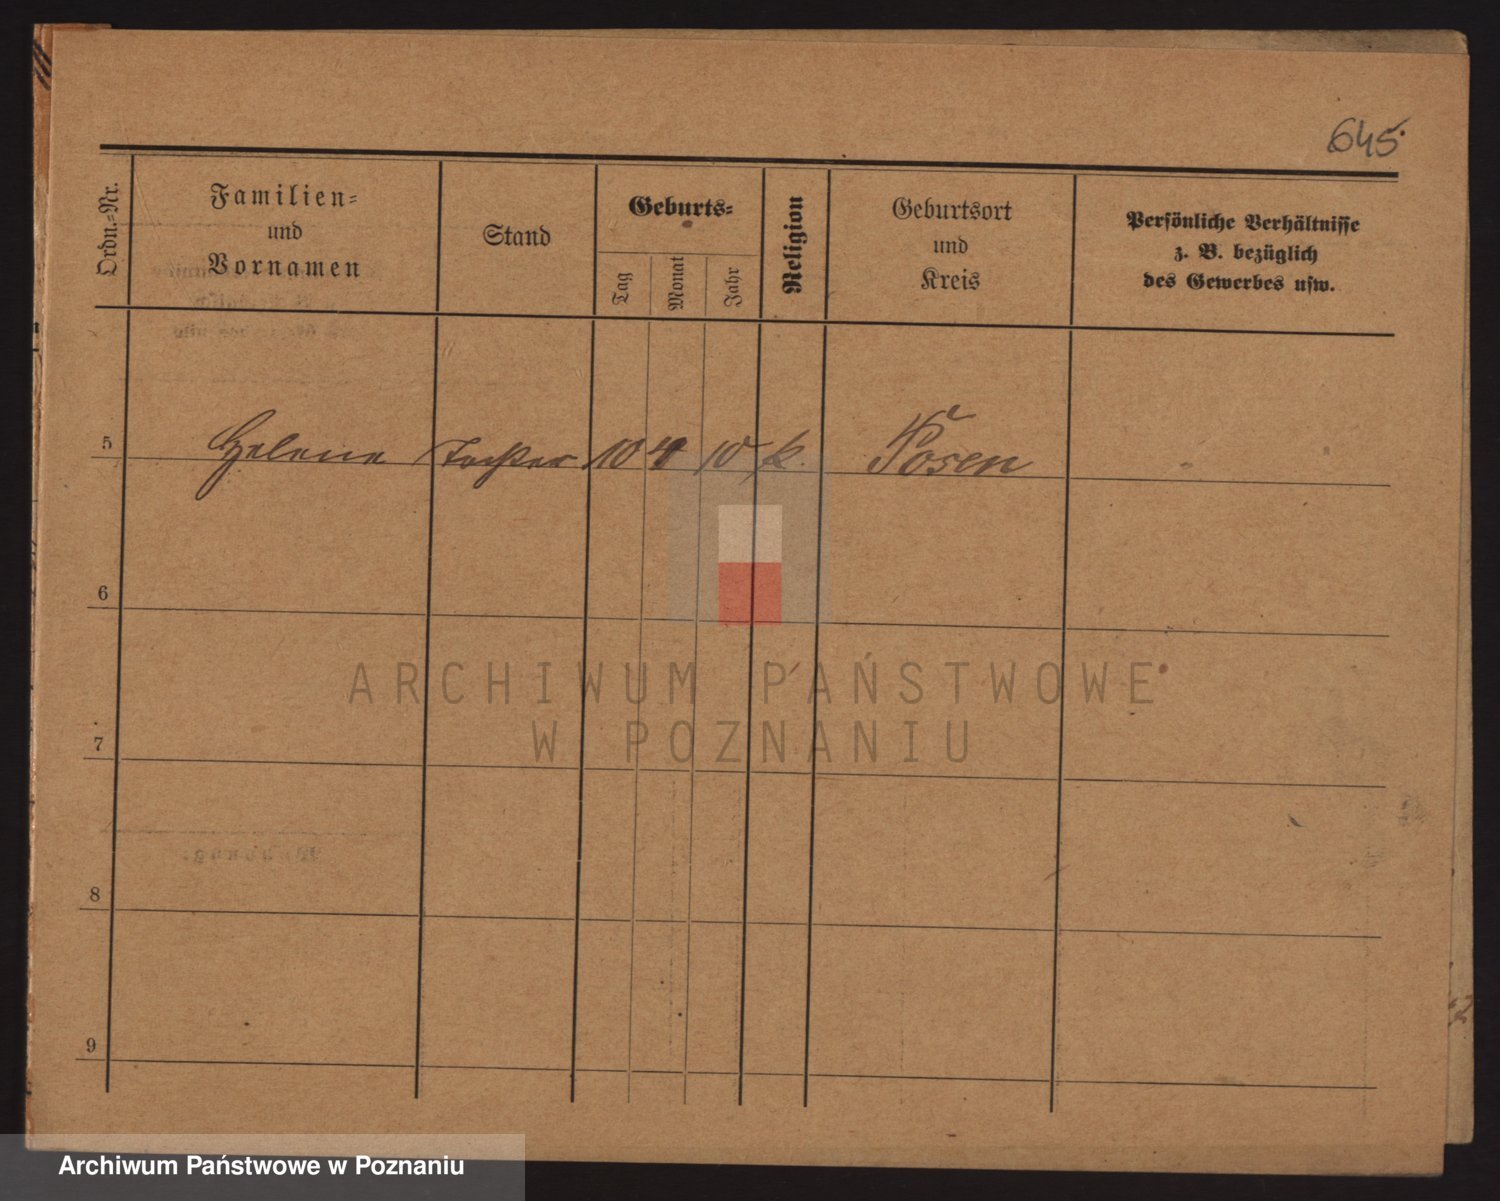 645
Ordn.=Nr.
Familien=
und
Vornamen
Stand
Geburts=
Tag
Monat
Jahr
Religion
Geburtsort
und
Kreis
Persönliche Verhältnisse
z. B. bezüglich
des Gewerbes usw.
5 Helene Tochter 10 4 10 k. Posen
6
7
8
9
ARCHIWUM PAŃSTWOWE
W POZNANIU
Archiwum Państwowe w Poznaniu